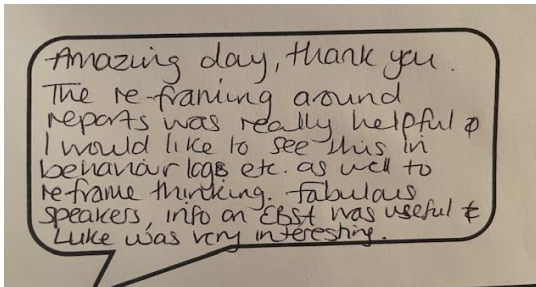 Amazing day, thank you.
The re-framing around
reports was really helpful &
I would like to see this in
behaviour logs etc. as well to
re-frame thinking. Fabulous
speakers, info on EBST was useful &
Luke was very interesting.